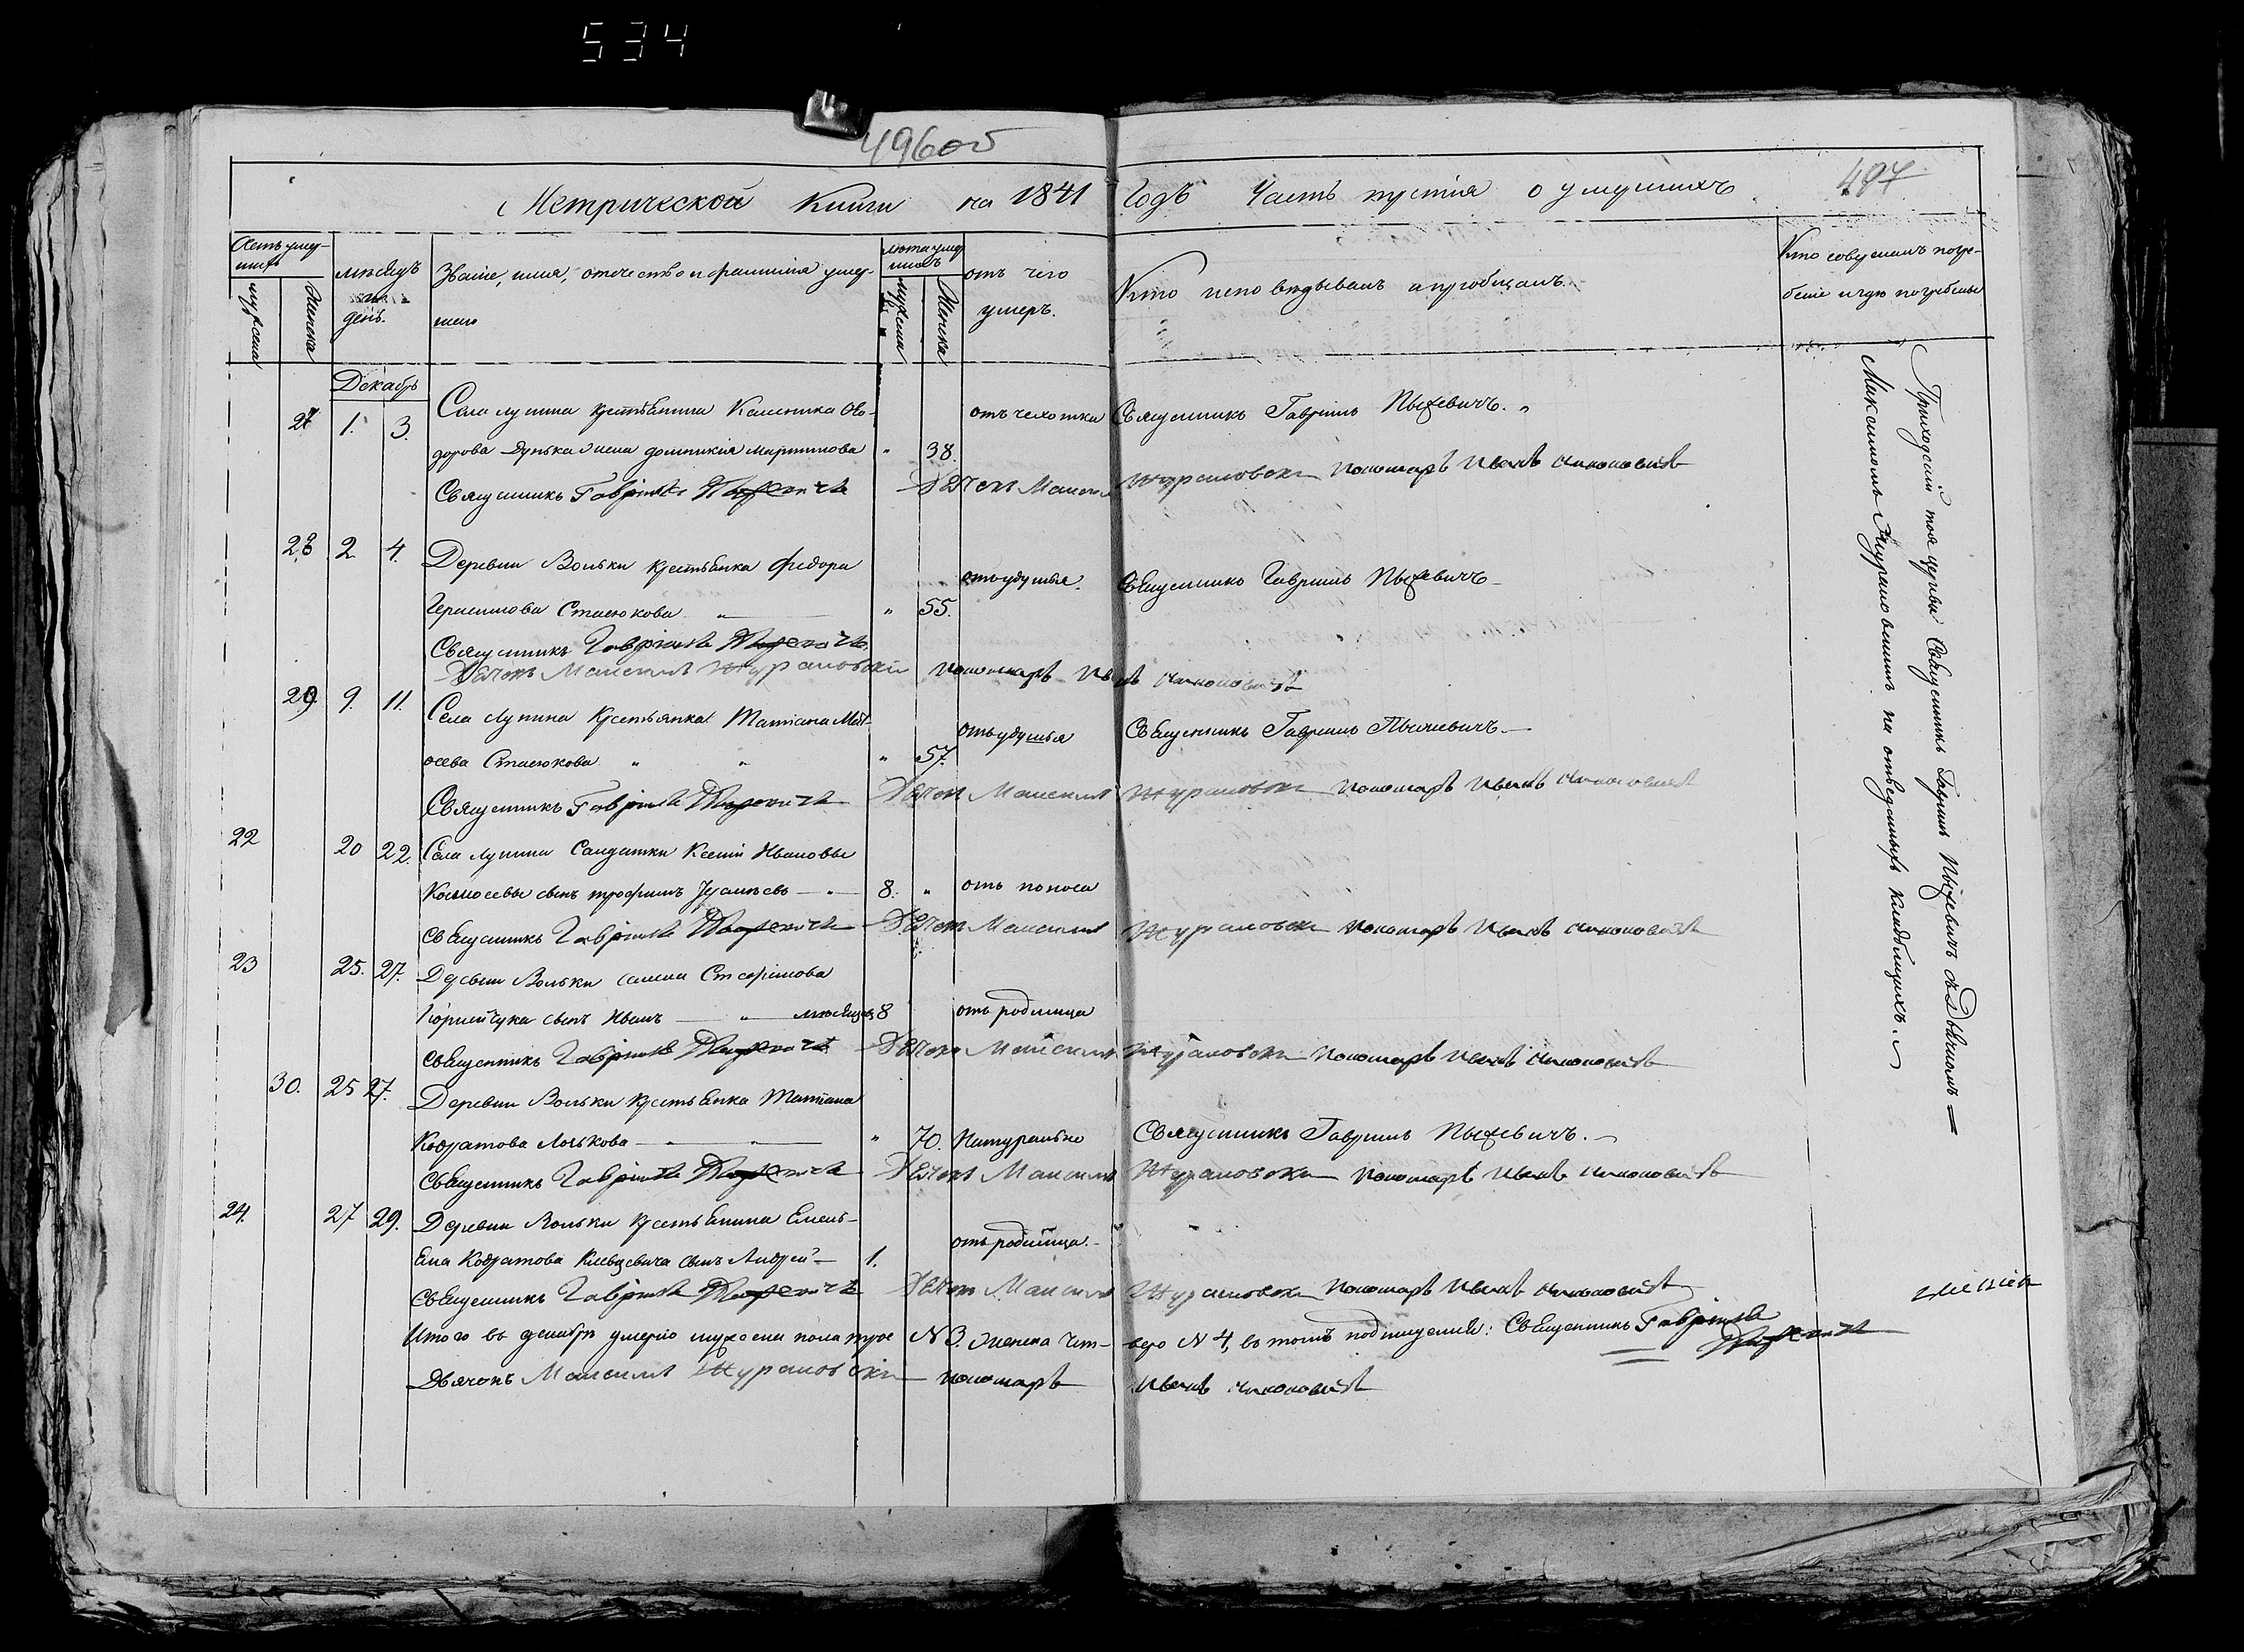 534
496об
Метрической Книги на 1841 Годъ Часть третія о умершихъ
497
Счетъ умершихъ
мужеска
Женска
мѣсяцъ и день.
Званіе, имя, отечество и фамилія умершаго
лѣта умершихъ
мужеска
Женска
отъ чего умеръ.
Кто исповѣдывалъ и пріобщалъ.
Кто совершалъ погребеніе и гдѣ погребены
Декабрь
27 1. 3. Села Лунина крестьянина Каленика Ѳео-
дорова Дунька жена Домникія Мартинова " 38. отъ чехотки Священникъ Гавріилъ Пыжевичъ.
Священникъ Гавріилъ Пыжевичъ Дячокъ Максимъ Журавовски Пономаръ Иванъ
28 2 4. Деревни Вольки крестьянка Федора
Герасимова Стасюкова " 55. отъ удушья. Священникъ Гавріилъ Пыжевичъ
Священникъ Гавріилъ Пыжевичъ
Дячокъ Максимъ Журавовски Пономаръ Иванъ
29. 9. 11. Села Лунина Крестьянка Татіана Мат-
ѳеева Стасюкова " " " 57. отъ удушья Священникъ Гавріилъ Пыжевичъ
Священникъ Гавріилъ Пыжевичъ Дячокъ Максимъ Журавовски Пономаръ Иванъ
22 20 22. Села Лунина Салдатки Ксеніи Ивановы
сынъ Трофимъ 8. " отъ поноса
Священникъ Гавріилъ Пыжевичъ Дячокъ Максимъ Журавовски Пономаръ Иванъ
23 25. 27. Деревни Вольки
сынъ Иванъ " мѣсяцъ 8 отъ родимца
Священникъ Гавріилъ Пыжевичъ Дячокъ Максимъ Журавовски Пономаръ Иванъ
30. 25 27. Деревни Вольки крестьянка Татіана
Кодратова " " 70. Натурально Священникъ Гавріилъ Пыжевичъ.
Священникъ Гавріилъ Пыжевичъ Дячокъ Максимъ Журавовски Пономаръ Иванъ
24. 27 29. Деревни Вольки крестьянина Емель-
яна Кодратова сынъ Андрей 1. отъ родимца.
Священникъ Гавріилъ Пыжевичъ Дячокъ Максимъ Журавовски Пономаръ Иванъ
Итого въ декабрѣ умерло мужеска пола трое N 3. Женска чет-
веро N 4, въ томъ подписуемся: Священникъ Гавріилъ Пыжевичъ
Дьячокъ Максимъ Журавовски Пономаръ Иванъ
Приходскій тоя церкви Священникъ Гавріилъ Пыжевичъ съ Дьячкомъ
Максимомъ Журавовскимъ на отведенныхъ кладбищахъ.